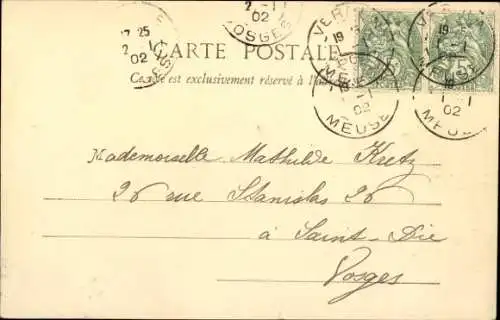 17 25
2 -1
02
VOSGES
02
CARTE POSTALE
Ce côté est exclusivement réservé à l'
19
MEUSE
02
MEUSE
19
MEUSE
02
MEUSE
5
Mademoiselle Mathilde Kretz
26 rue Stanislas 26
à Saint-Die
Vosges